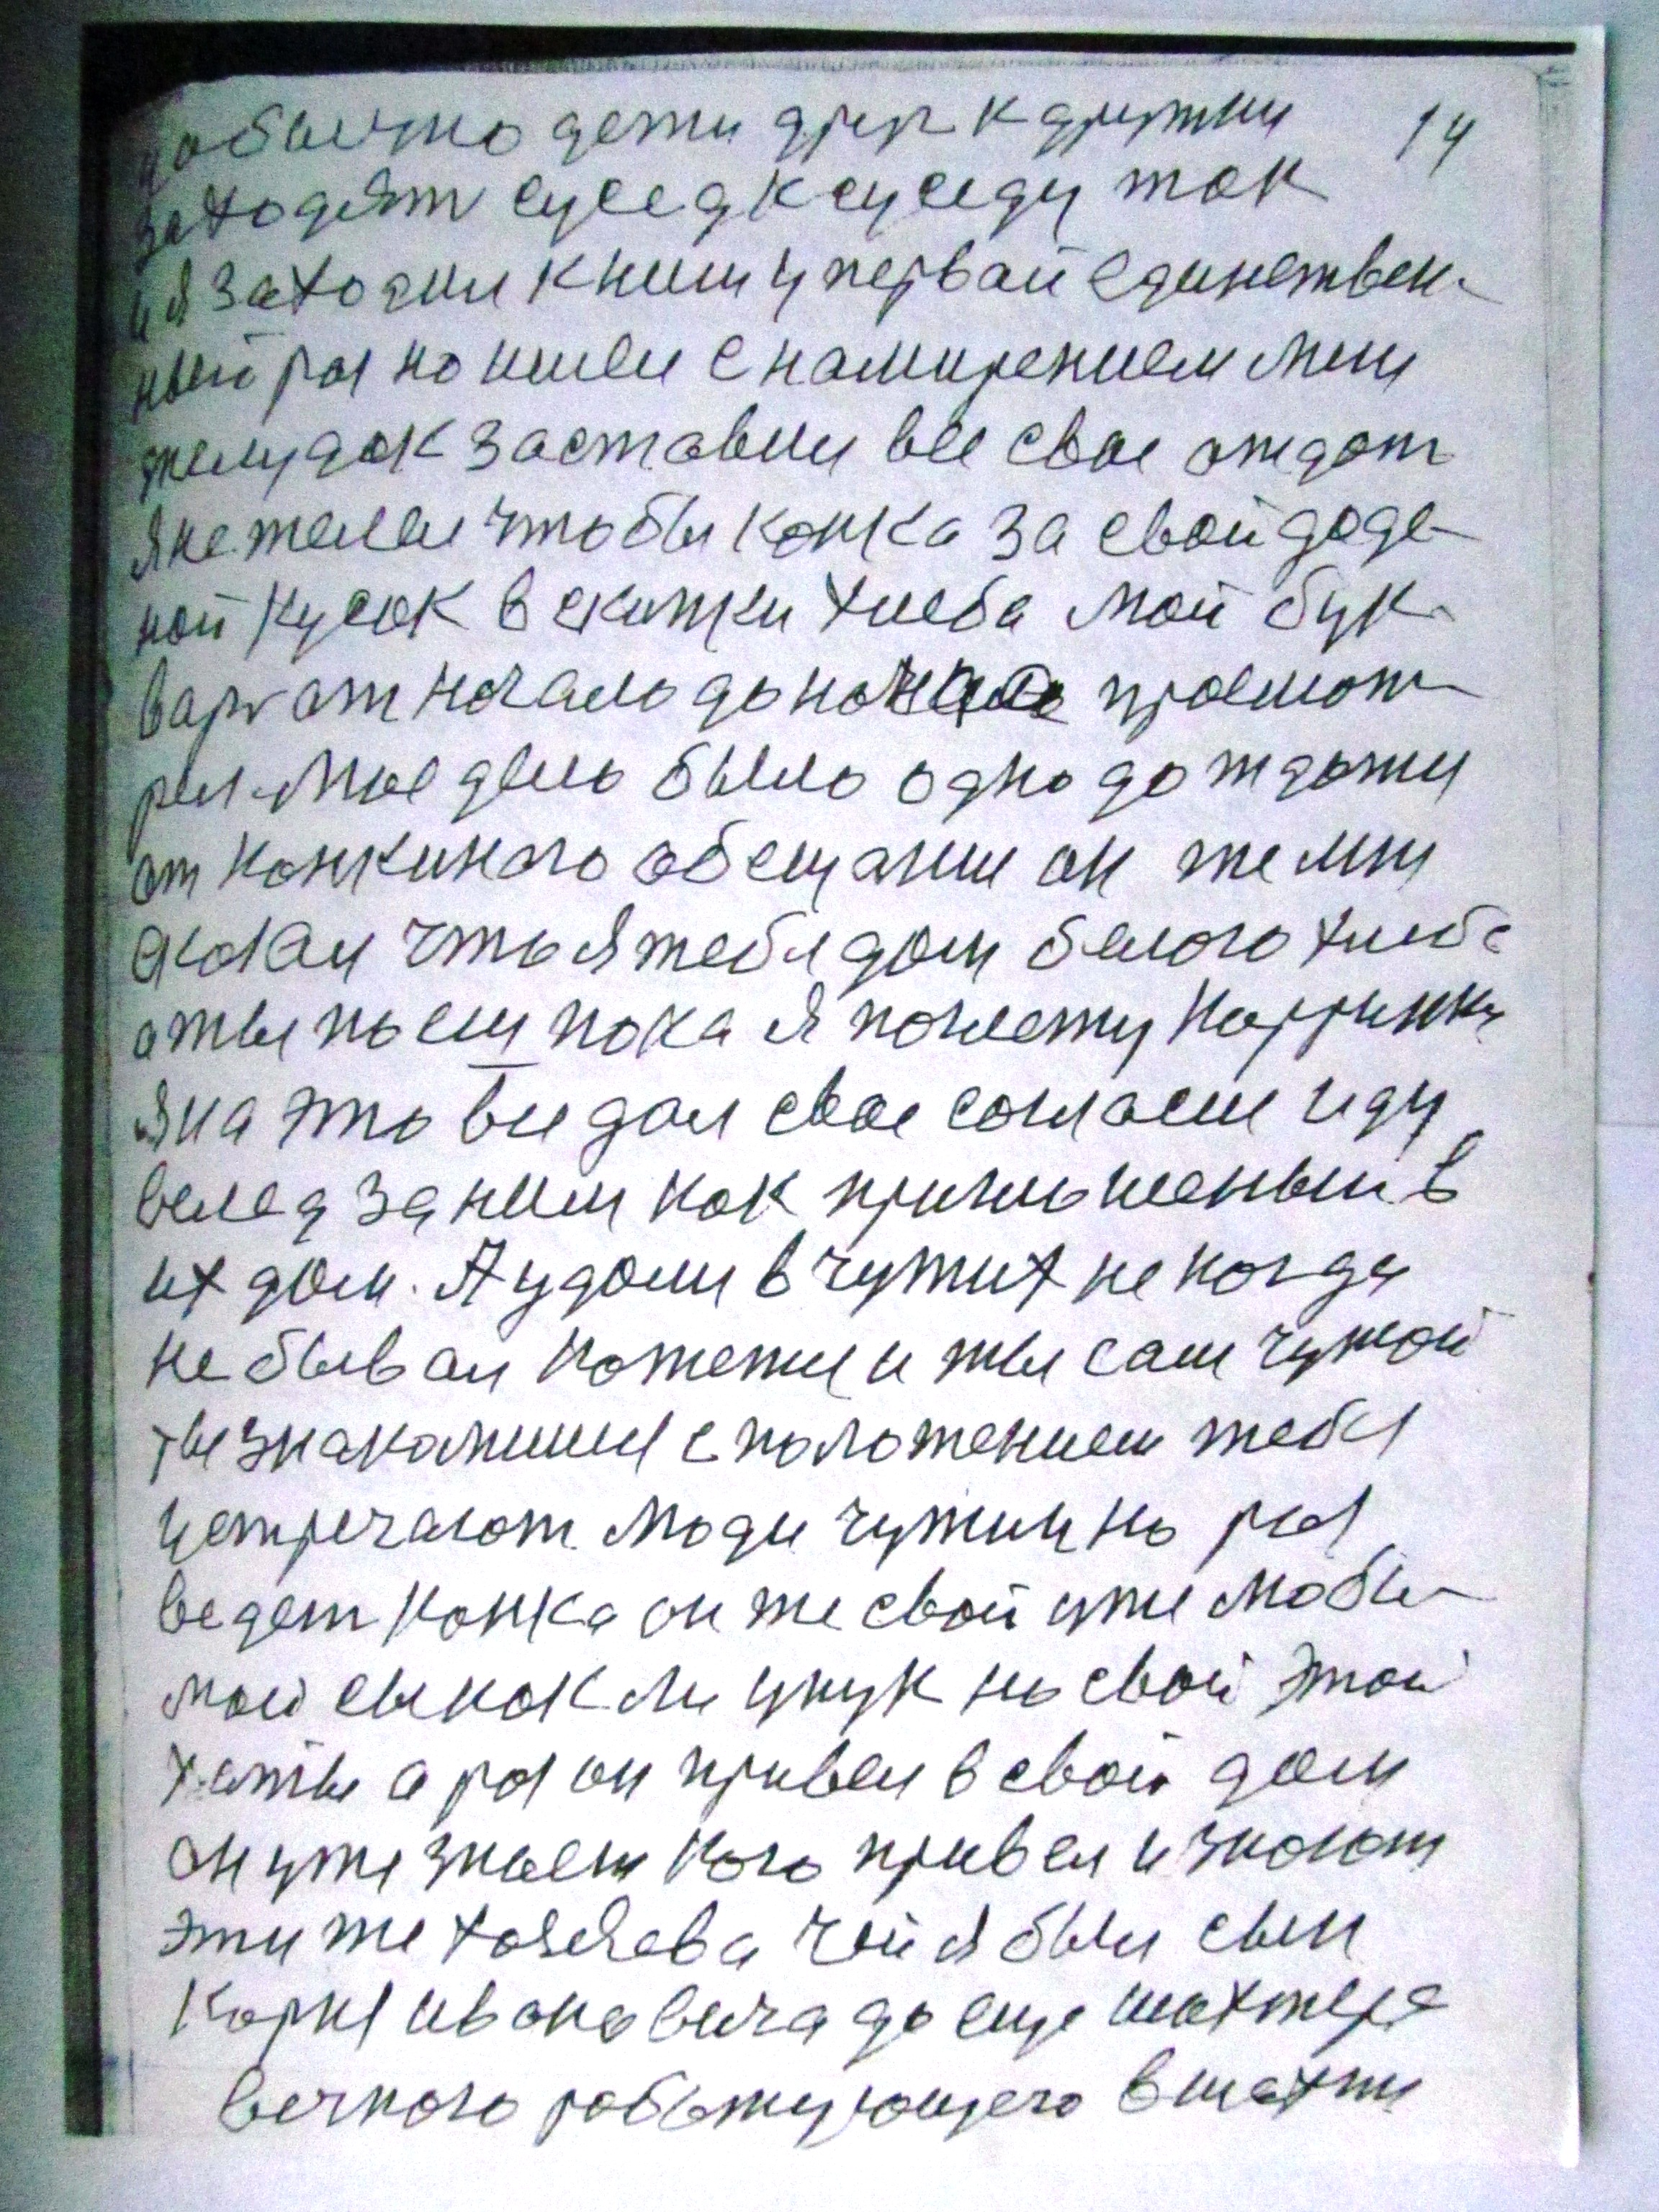 уобычно дети друг к дружки 14
заходят сусед к суседу так
и я заходил к ним у первай единствен-
ный раз но имел с намирением мни
желудок заставил все свае отдать
я не желал чтобы конка за свой даде-
ной кусок в скипки хлеба мой бук-
варь от начало до просмот-
рел. Мое дело было одно дождати
от конкиного обещании он же мни
сказал что я тебя дам белого хлеба
а ты поси пока я погляжу
я на это все дал свое согласие иду
вслед за ним как приглошеный в
их дом. А у доми в чужих не когда
не бывал кожется и ты сам чужой
ты знакомишся с положением тебя
устречают люди чужии но раз
ведет конка он же свой уже любы-
мой сынок ли унук но свой этой
хаты а раз он привел в свой дом
он уже знает кого привел и знают
эти же хозяева чей я был сын
Карпа ивановича до еще шахтера
вечного работующего в шахти